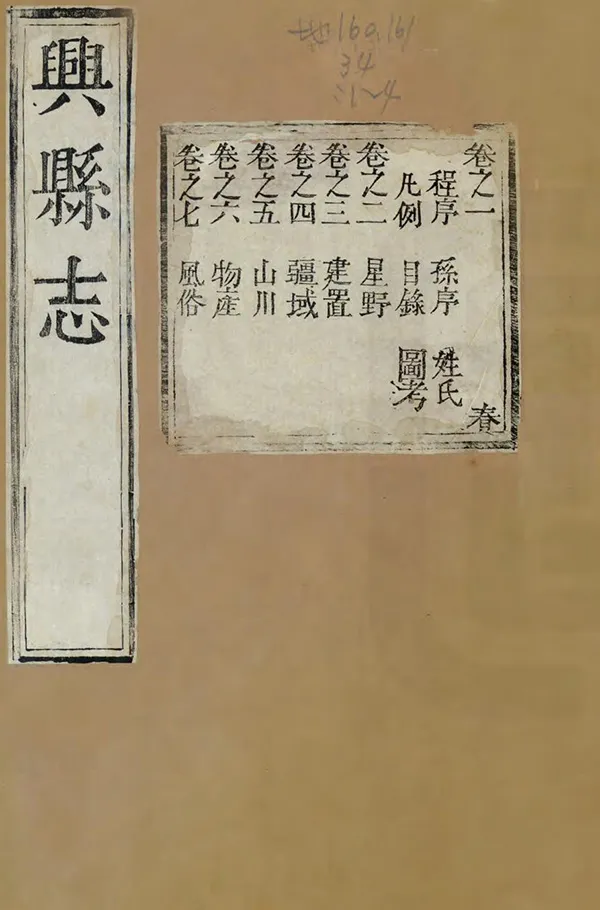 興縣志
卷之一
春
程序 孫序 姓氏
凡例 目錄 圖考
卷之二 星野
卷之三 建置
卷之四 疆域
卷之五 山川
卷之六 物產
卷之七 風俗
地160.161
34
:1~4